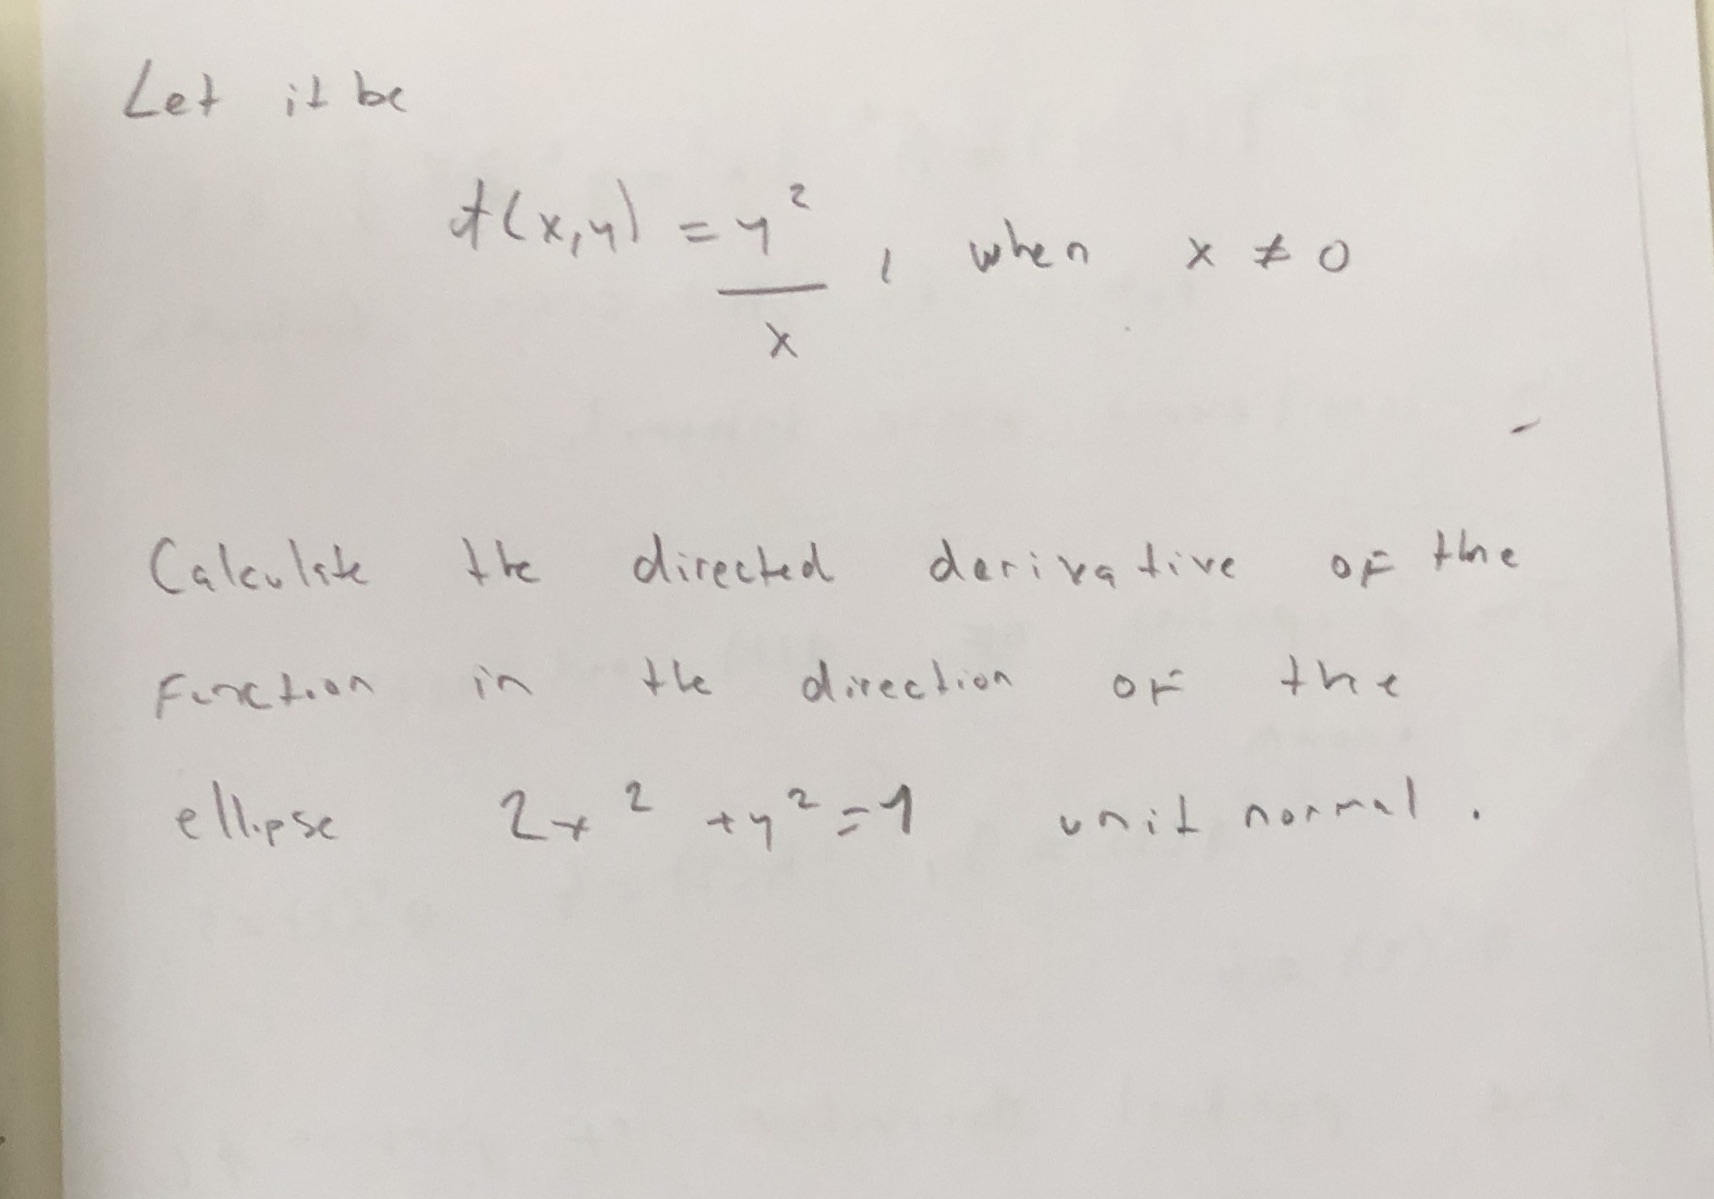 Let it be
f(x,y) = y²/x , when x ≠ 0
Calculate the directed derivative of the
function in the direction of the
ellipse 2x² + y² = 1 unit normal.